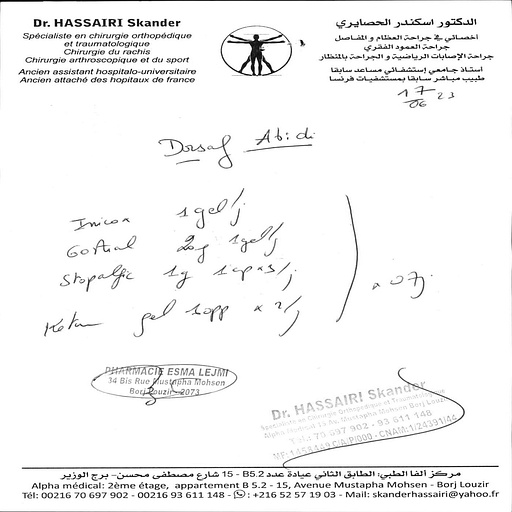 Dr. HASSAIRI Skander
Spécialiste en chirurgie orthopédique
et traumatologique
Chirurgie du rachis
Chirurgie arthroscopique et du sport
Ancien assistant hospitalo-universitaire
Ancien attaché des hopitaux de france
الدكتور اسكندر الحصايري
أخصائي في جراحة العظام و المفاصل
جراحة العمود الفقري
جراحة الإصابات الرياضية و الجراحة بالمنظار
أستاذ جامعي إستشفائي مساعد سابقا
طبيب مباشر سابقا بمستشفيات فرنسا
17/06 23
Dorsaf Abidi
Inicox 1gel/j
20g 1gel/j
Stopalgic 1g 1cp x 3/j
Ketum gel 1opp x 2/j
x 07j
PHARMACIE ESMA LEJMI
34 Bis Rue Mustapha Mohsen
Borj Louzir - 2073
Dr. HASSAIRI Skander
Spécialiste en Chirurgie Orthopédique et Traumatologique
97 902 - 93 611 148
مركز ألفا الطبي: الطابق الثاني عيادة عدد B5.2 - 15 شارع مصطفى محسن- برج الوزير
Alpha médical: 2ème étage, appartement B 5.2 - 15, Avenue Mustapha Mohsen - Borj Louzir
Tél: 00216 70 697 902 - 00216 93 611 148 - : +216 52 57 19 03 - Mail: skanderhassairi@yahoo.fr